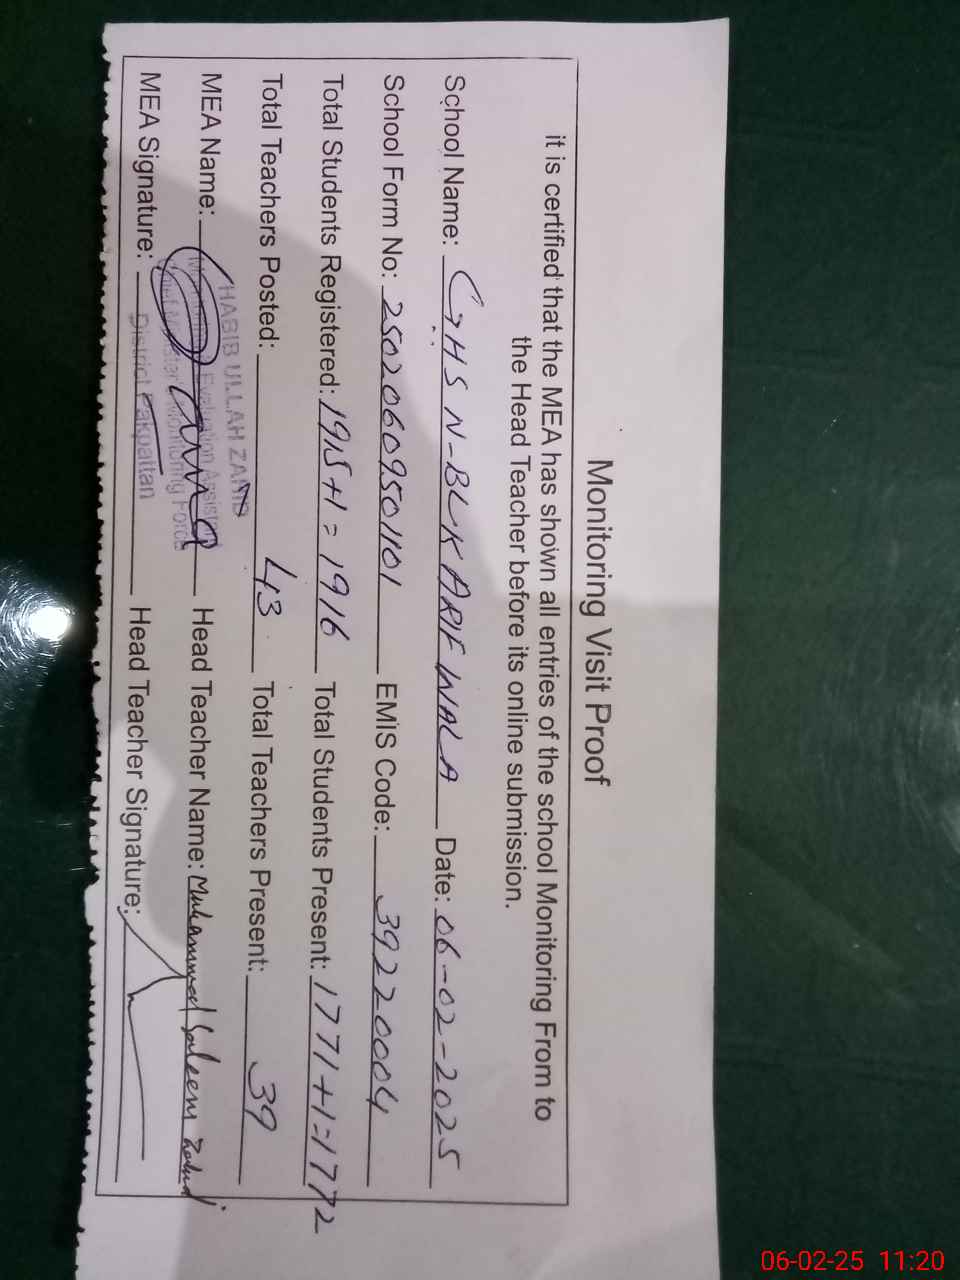 Monitoring Visit Proof
it is certified that the MEA has shown all entries of the school Monitoring From to
the Head Teacher before its online submission.
School Name: GHS N-BLK ARIFWALA Date: 06-02-2025
School Form No: 25020609501101 EMIS Code: 39220004
Total Students Registered: 1915+1=1916 Total Students Present: 1771+1=1772
Total Teachers Posted: 43 Total Teachers Present: 39
HABIB ULLAH ZAHID
MEA Name: Head Teacher Name: Muhammad Saleem
Monitoring & Evaluation Assistant
Chief Minister Monitoring Force
MEA Signature: Head Teacher Signature:
District Pakpattan
06-02-25 11:20